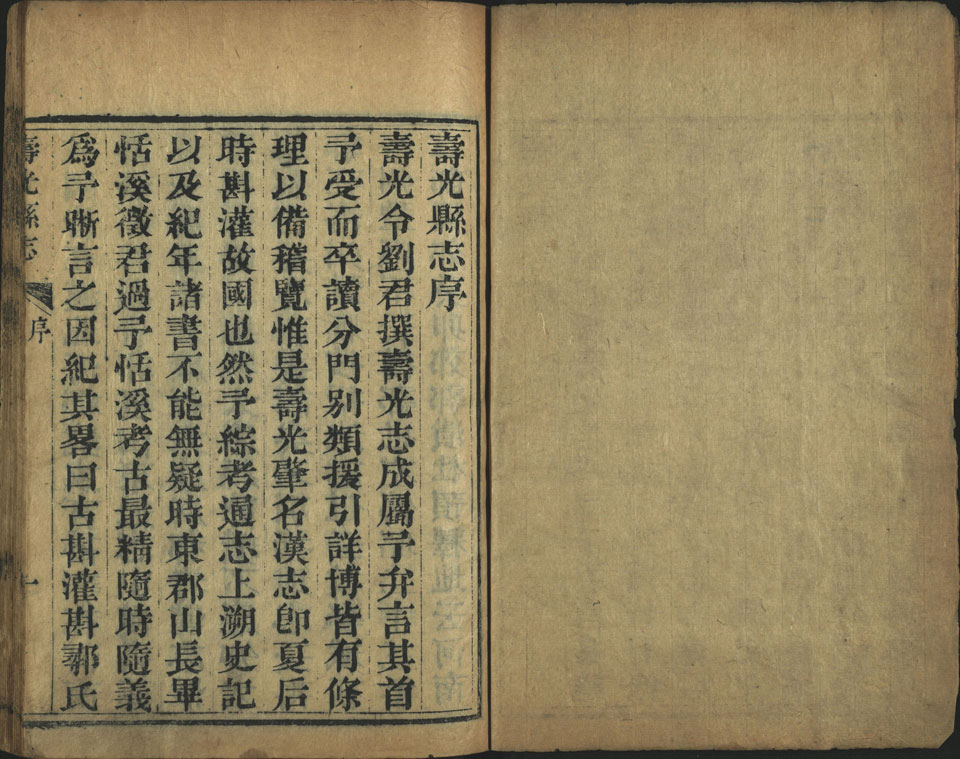 壽光縣志序
壽光令劉君撰壽光志成屬予弁言其首
予受而卒讀分門别類援引詳博皆有條
理以備稽覽惟是壽光肇名漢志卽夏后
時斟灌故國也然予綜考通志上溯史記
以及紀年諸書不能無疑時東郡山長畢
恬溪徵君過予恬溪考古最精隨時隨義
爲予晰言之因紀其畧曰古斟灌斟鄩氏
壽光縣志
序
一